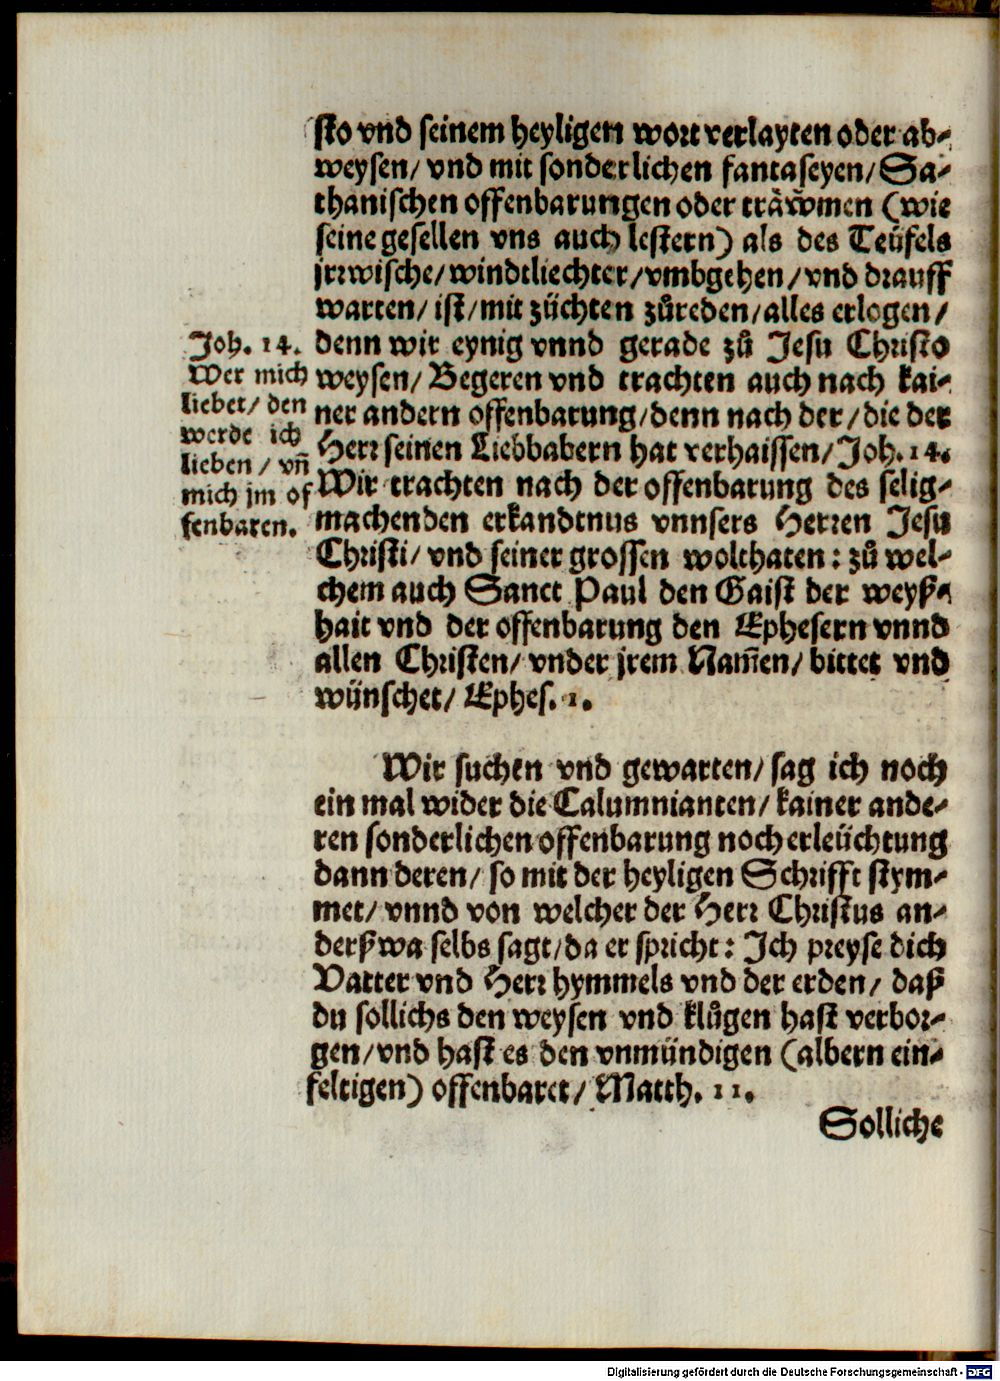 sto vnd seinem heyligen wort verlayten oder ab-
weysen/ vnd mit sonderlichen fantaseyen/ Sa-
thanischen offenbarungen oder träwmen (wie
seine gesellen vns auch lestern) als des Teüfels
jrrwische/ windtliechter/ vmbgehen/ vnd drauff
warten/ ist/ mit züchten zůreden/ alles erlogen/
denn wir eynig vnnd gerade zů Jesu Christo
weysen/ Begeren vnd trachten auch nach kai-
ner andern offenbarung/ denn nach der/ die der
Herr seinen Liebhabern hat verhaissen/ Joh. 14.
Wir trachten nach der offenbarung des selig-
machenden erkandtnus vnnsers Herren Jesu
Christi/ vnd seiner grossen wolthaten: zů wel-
chem auch Sanct Paul den Gaist der weyß-
hait vnd der offenbarung den Ephesern vnnd
allen Christen/ vnder jrem Nam̄en/ bittet vnd
wünschet/ Ephes. 1.
Joh. 14.
Wer mich
liebet/ den
werde ich
lieben/ vn̄
mich jm of
fenbaren.
Wir suchen vnd gewarten/ sag ich noch
ein mal wider die Calumnianten/ kainer ande-
ren sonderlichen offenbarung noch erleüchtung
dann deren/ so mit der heyligen Schrifft stym-
met/ vnnd von welcher der Herr Christus an-
derßwa selbs sagt/ da er spricht: Ich preyse dich
Vatter vnd Herr hymmels vnd der erden/ daß
du sollichs den weysen vnd klůgen hast verbor-
gen/ vnd hast es den vnmündigen (albern ein-
feltigen) offenbaret/ Matth. 11.
Solliche
Digitalisierung gefördert durch die Deutsche Forschungsgemeinschaft - DFG